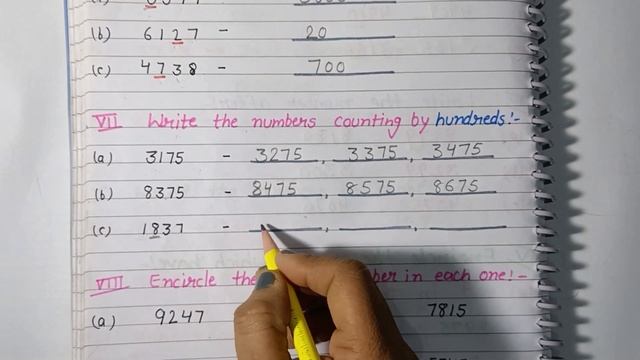 (b) 6127 - 20
(c) 4738 - 700
VII Write the numbers counting by hundreds:-
(a) 3175 - 3275, 3375, 3475
(b) 8375 - 8475, 8575, 8675
(c) 1837 - ____, ____, ____
VIII Encircle the in each one:-
(a) 9247 7815